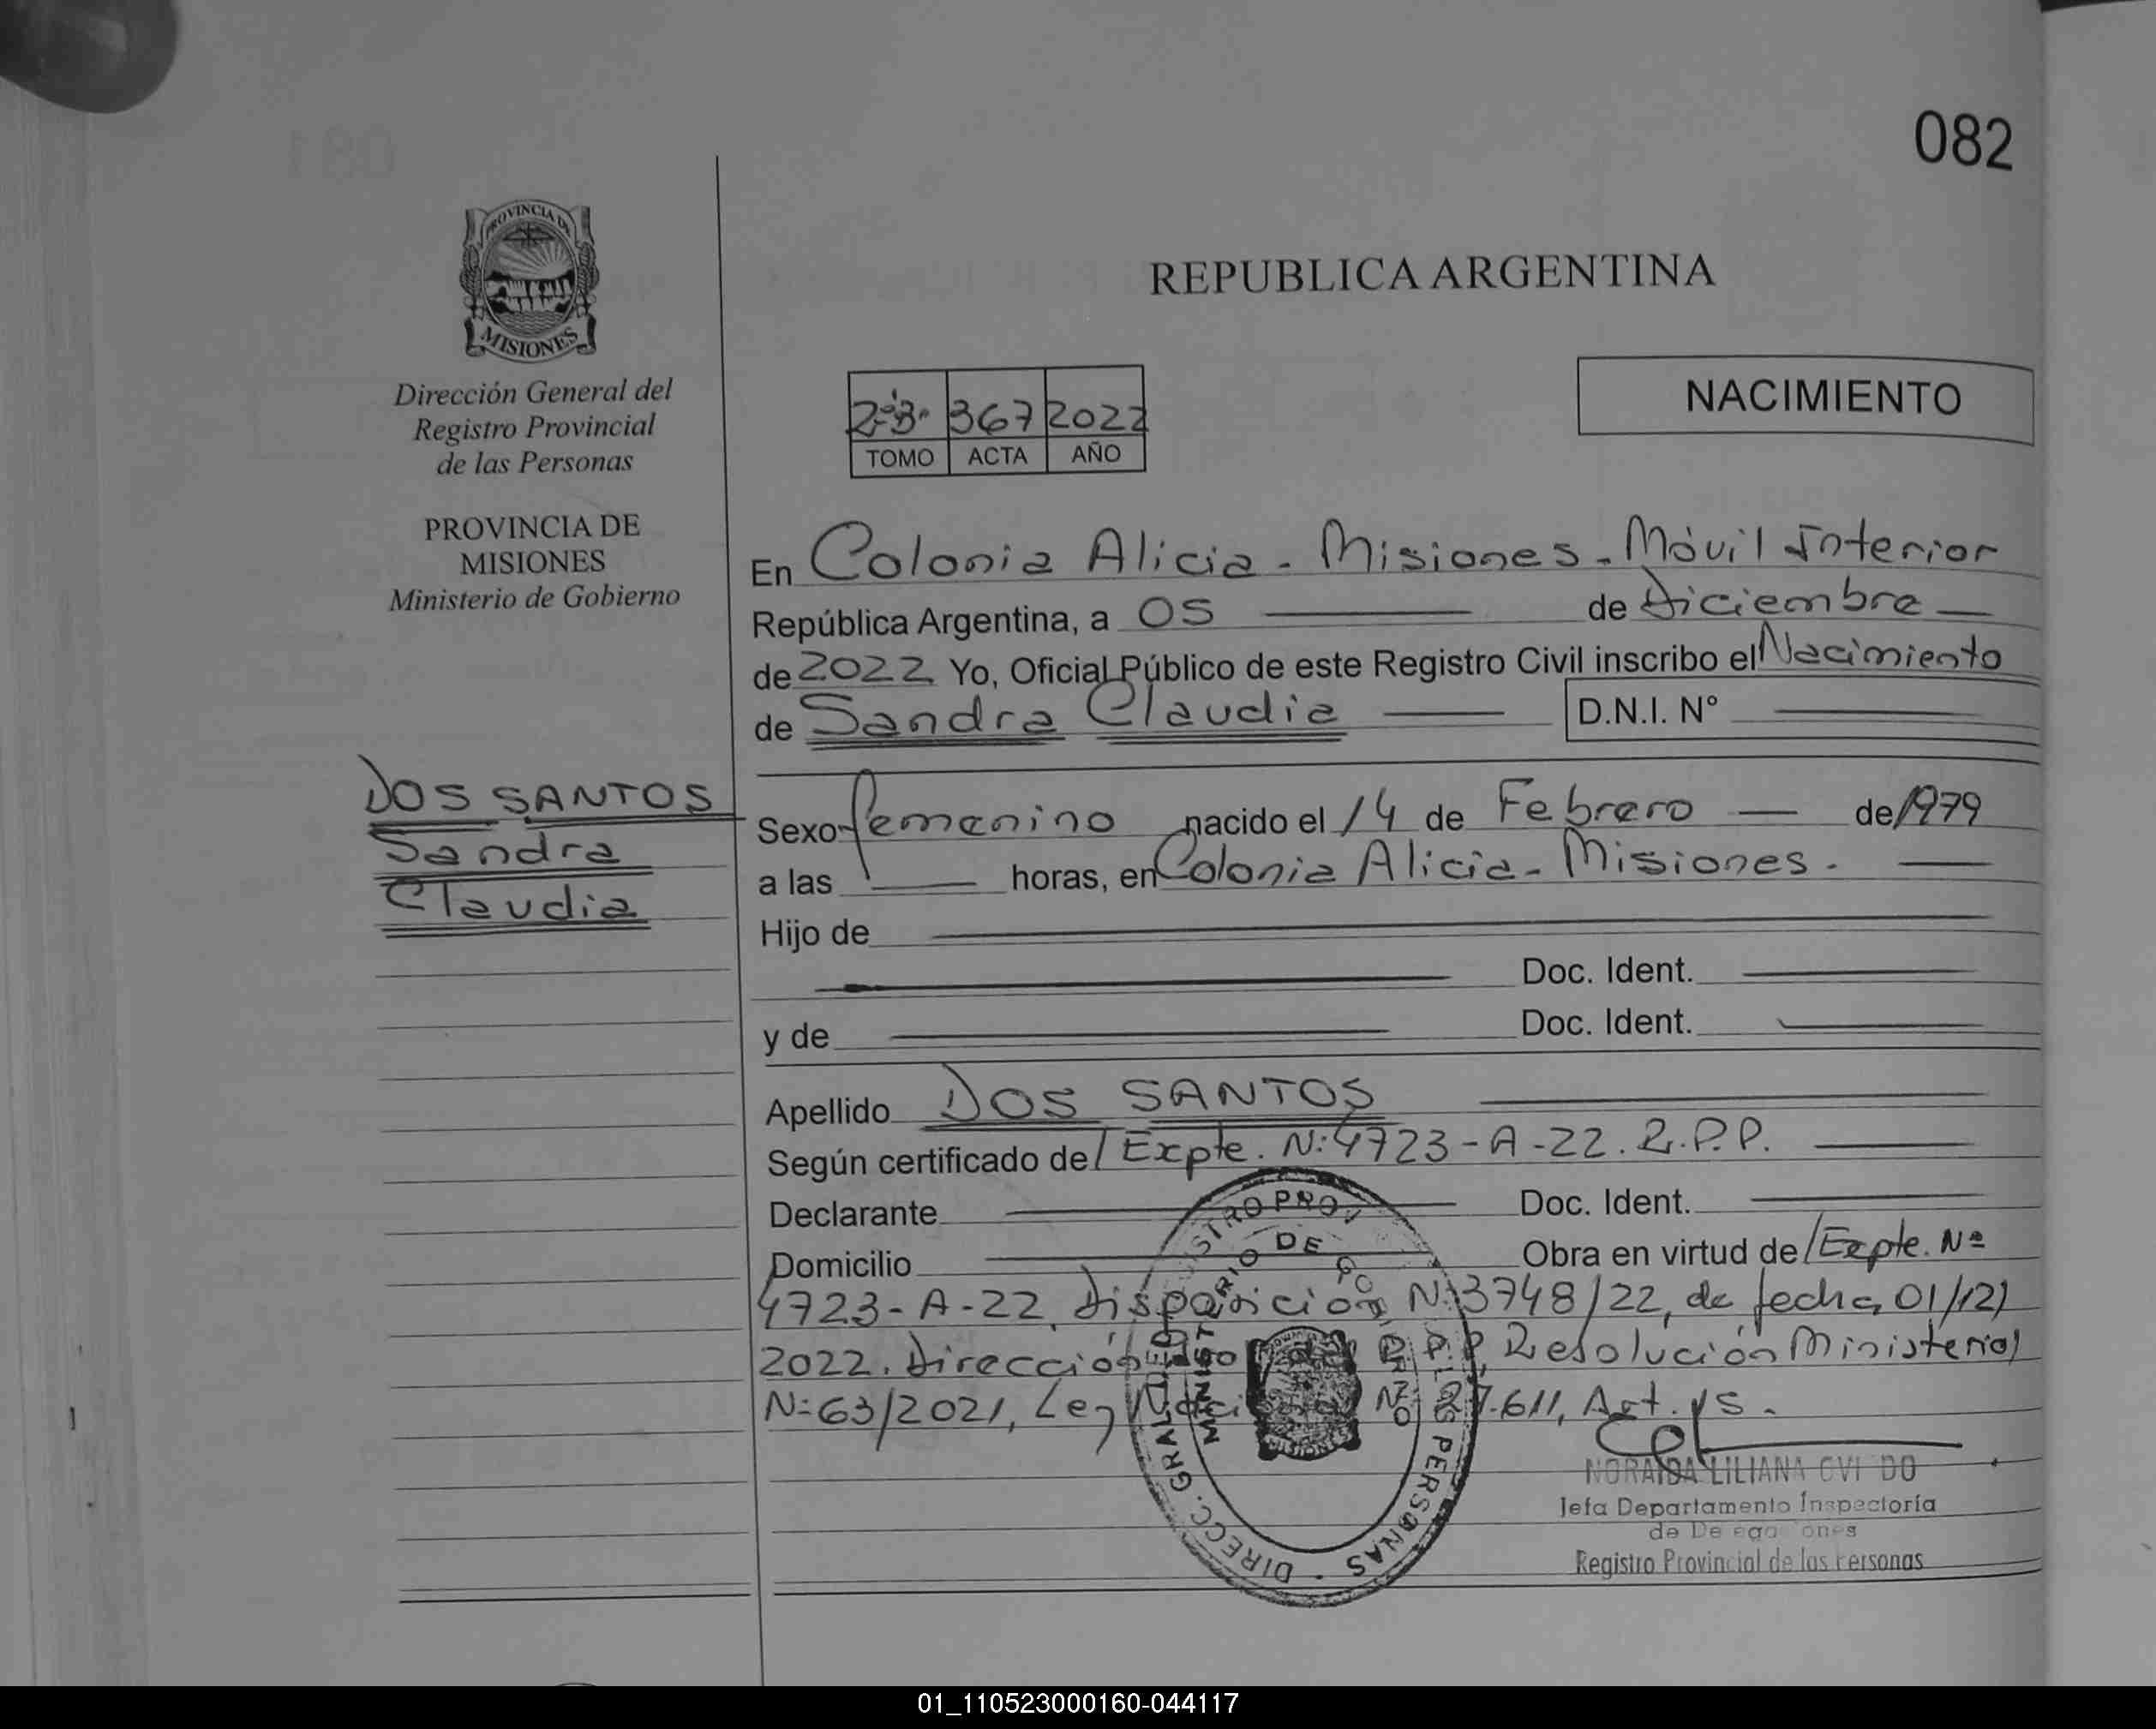 082
PROVINCIA DE
MISIONES
Dirección General del
Registro Provincial
de las Personas
PROVINCIA DE
MISIONES
Ministerio de Gobierno
DOS SANTOS
Sandra
Claudia
REPUBLICA ARGENTINA
NACIMIENTO
367 2022
TOMO ACTA AÑO
En Colonia Alicia - Misiones - Móvil Interior
República Argentina, a 05 de Diciembre
de 2022 Yo, Oficial Público de este Registro Civil inscribo el Nacimiento
de Sandra Claudia D.N.I. Nº
Sexo femenino nacido el 14 de Febrero de 1979
a las horas, en Colonia Alicia - Misiones.
Hijo de
Doc. Ident.
y de Doc. Ident.
Apellido DOS SANTOS
Según certificado de/ Expte. N: 4723-A-22. R.P.P.
Declarante Doc. Ident.
Domicilio Obra en virtud de/ Expte. Nº
4723-A-22, Disposición N: 3748/22, de fecha 01/12/
2022. Dirección R.P.P, Resolución Ministerial
N: 63/2021, Ley Nº 27.611, Art. 15.
DIRECC. GRAL. PERSONAS
MINISTERIO DE GOBIERNO
MISIONES
NORAIDA LILIANA
Jefa Departamento Inspectoría
de
Registro Provincial de las Personas
01_110523000160-044117